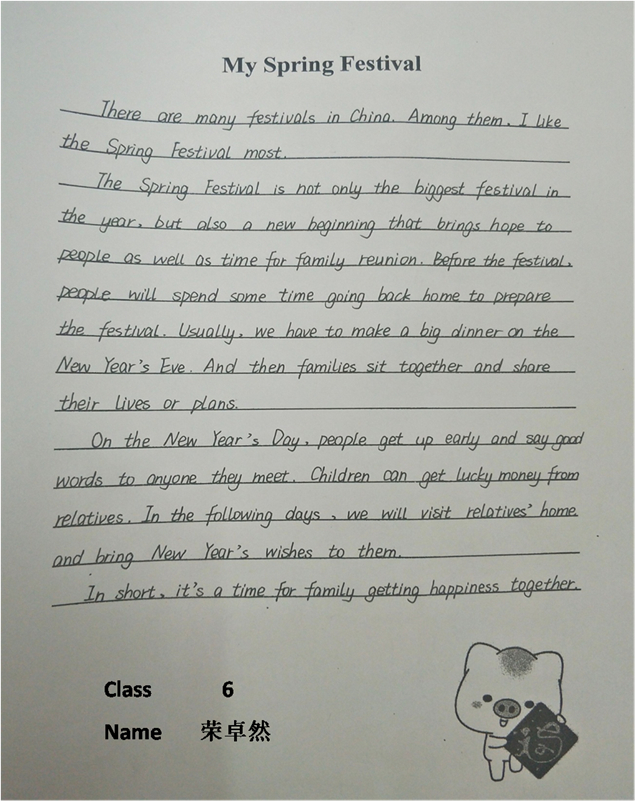 My Spring Festival
There are many festivals in China. Among them, I like
the Spring Festival most.
The Spring Festival is not only the biggest festival in
the year, but also a new beginning that brings hope to
people as well as time for family reunion. Before the festival,
people will spend some time going back home to prepare
the festival. Usually, we have to make a big dinner on the
New Year's Eve. And then families sit together and share
their lives or plans.
On the New Year's Day, people get up early and say good
words to anyone they meet. Children can get lucky money from
relatives. In the following days, we will visit relatives' home
and bring New Year's wishes to them.
In short, it's a time for family getting happiness together.
Class 6
Name 荣卓然